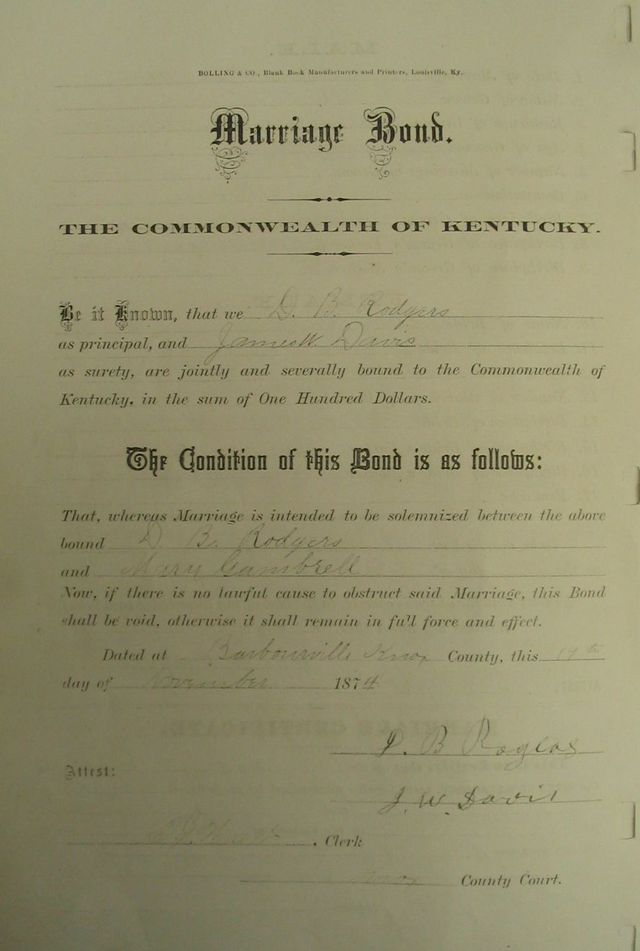 BOLLING & CO., Blank Book Manufacturers and Printers, Louisville, Ky.
Marriage Bond.
THE COMMONWEALTH OF KENTUCKY.
Be it Known, that we D. B. Rodgers
as principal, and James W. Davis
as surety, are jointly and severally bound to the Commonwealth of
Kentucky, in the sum of One Hundred Dollars.
The Condition of this Bond is as follows:
That, whereas Marriage is intended to be solemnized between the above
bound D. B. Rodgers
and Mary Gambrell
Now, if there is no lawful cause to obstruct said Marriage, this Bond
shall be void, otherwise it shall remain in full force and effect.
Dated at Barbourville Knox County, this
day of November 1874
D. B
J. W. Davis
Attest:
, Clerk
Knox County Court.